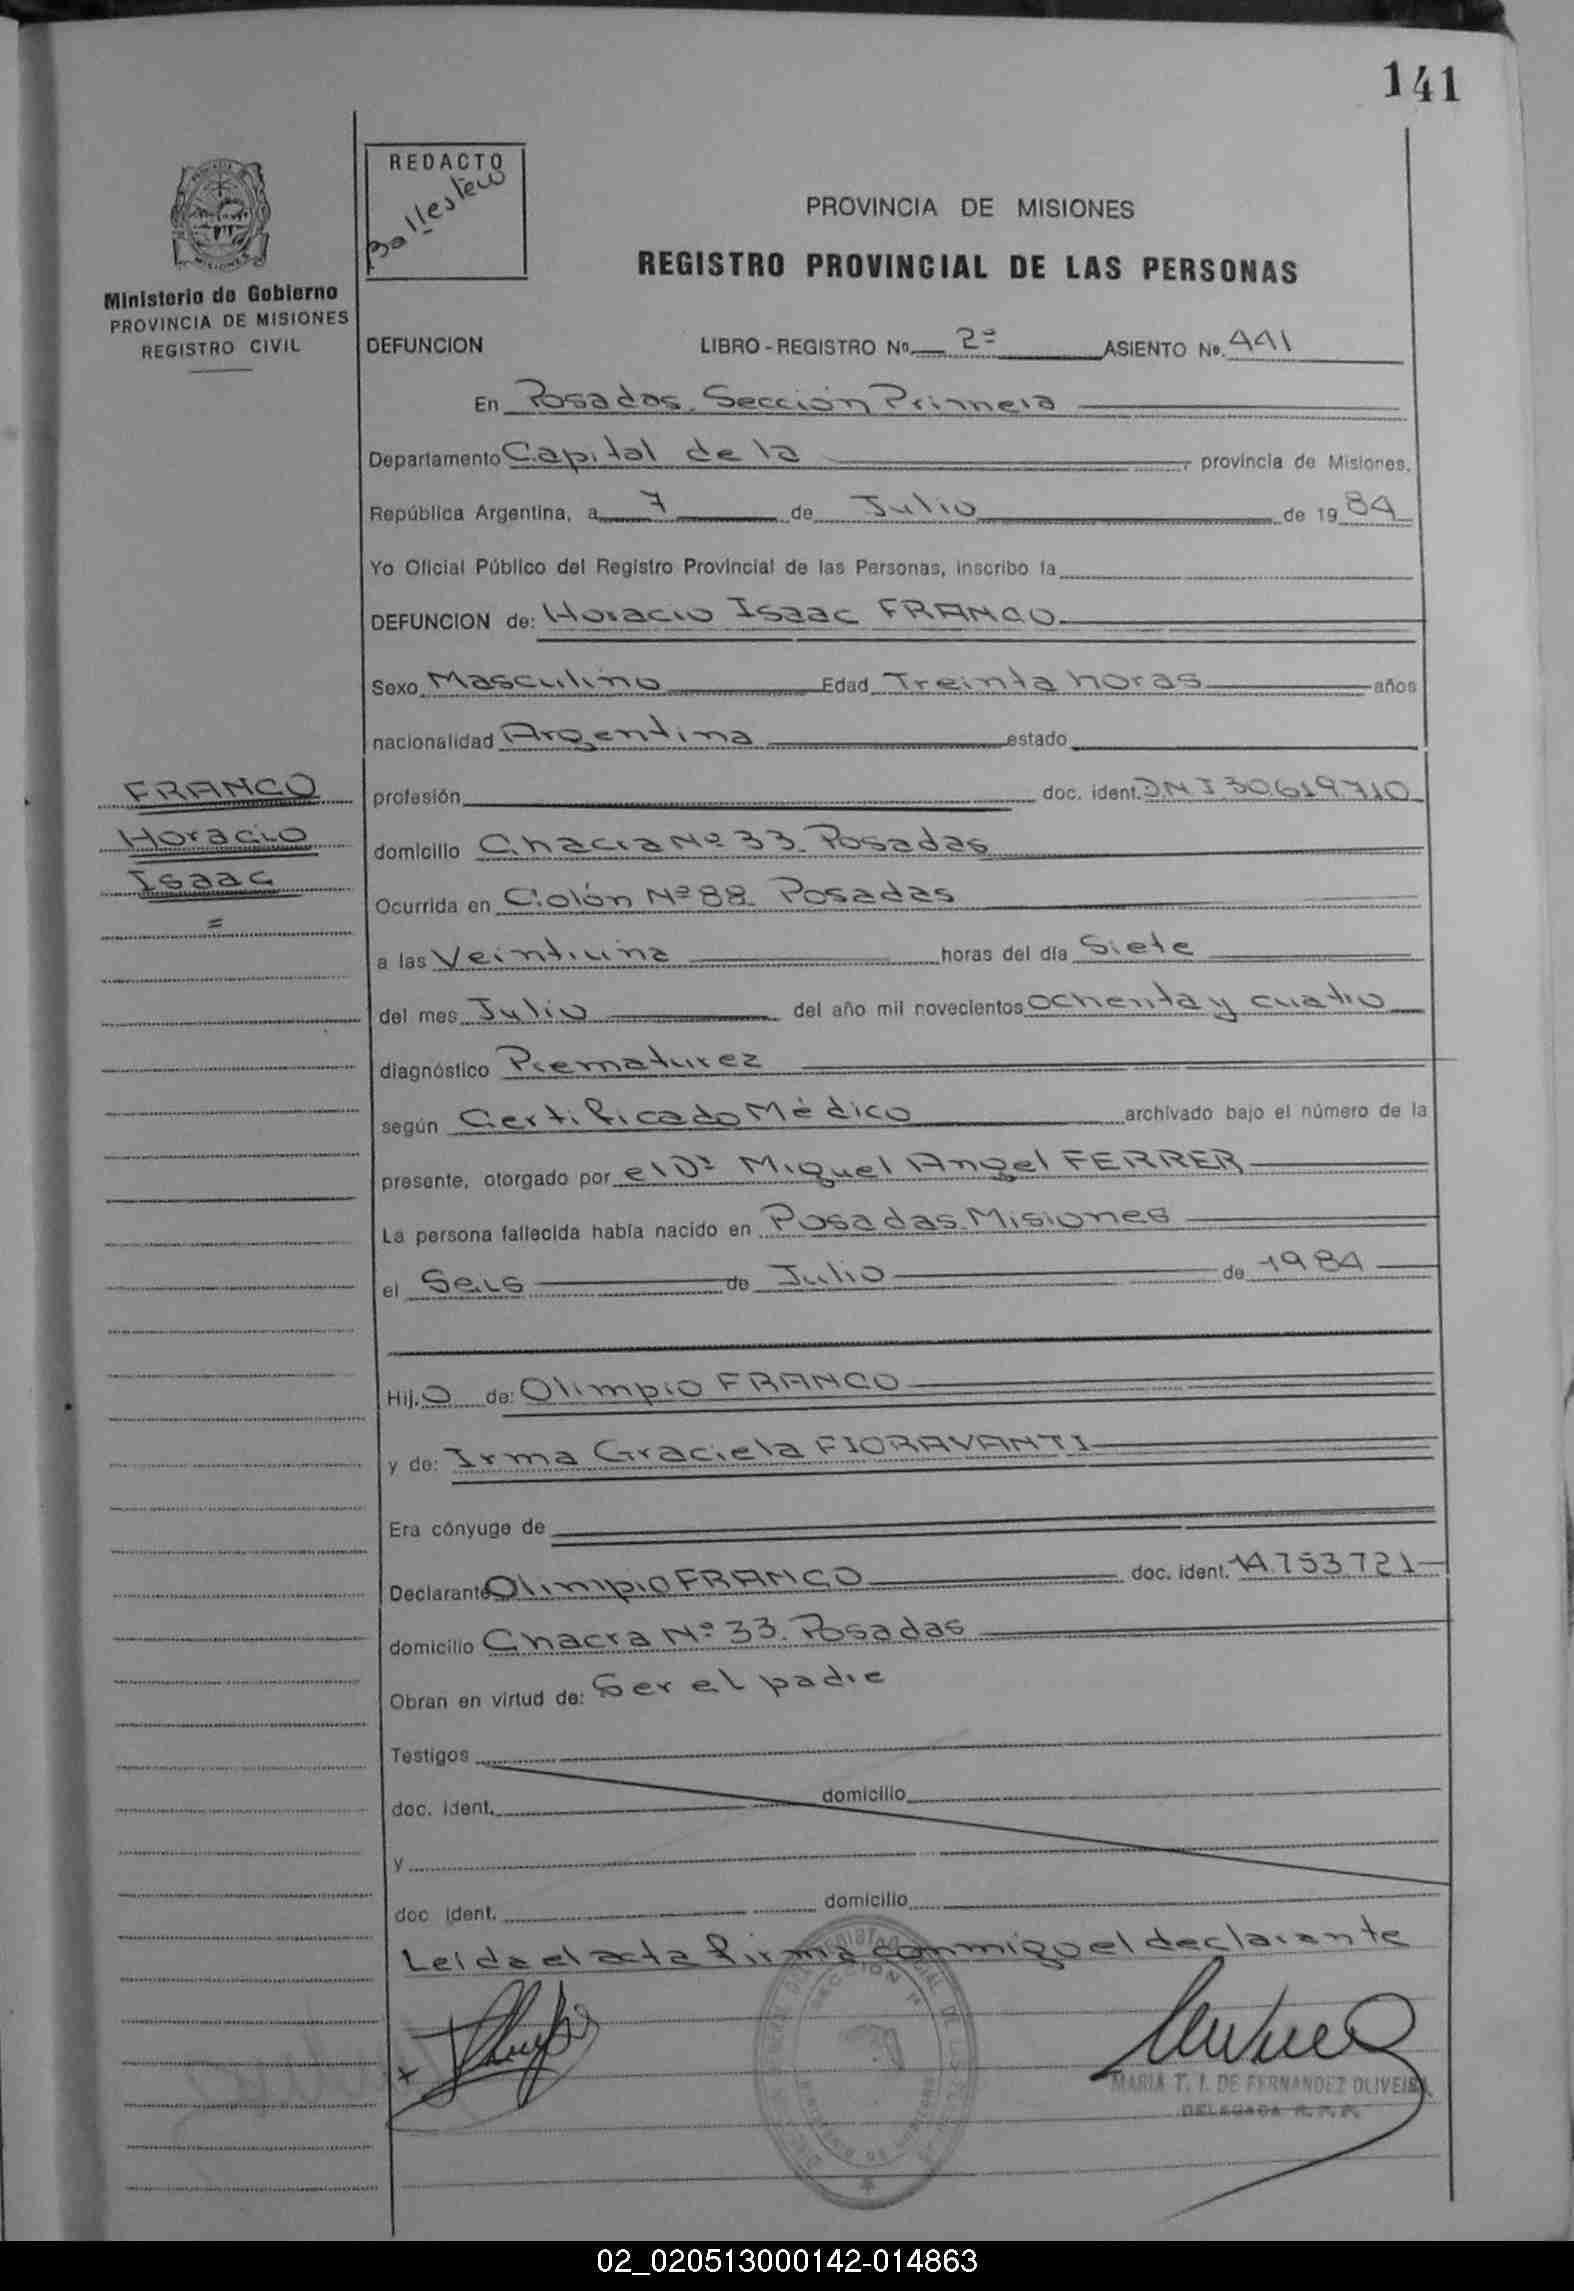 141
REDACTO
Ballestew
PROVINCIA DE MISIONES
REGISTRO PROVINCIAL DE LAS PERSONAS
Ministerio de Gobierno
PROVINCIA DE MISIONES
REGISTRO CIVIL
DEFUNCION LIBRO - REGISTRO Nº. 2º ASIENTO Nº. 441
En Posadas. Sección Primera
Departamento Capital de la , provincia de Misiones.
República Argentina, a 7 de Julio de 1984
Yo Oficial Público del Registro Provincial de las Personas, inscribo la
DEFUNCION de: Horacio Isaac FRANCO
Sexo Masculino Edad Treinta horas años
nacionalidad Argentina estado
FRANCO
Horacio
Isaac
=
profesión doc. ident. DNI 30.619.710
domicilio Chacra Nº 33. Posadas
Ocurrida en Colón Nº 88. Posadas
a las Veintiuna horas del día Siete
del mes Julio del año mil novecientos ochenta y cuatro
diagnóstico Prematurez
según Certificado Médico archivado bajo el número de la
presente, otorgado por el Dr Miguel Angel FERRER
La persona fallecida había nacido en Posadas. Misiones
el Seis de Julio de 1984
Hij o de: Olimpio FRANCO
y de: Irma Graciela FIORAVANTI
Era cónyuge de
Declarante Olimpio FRANCO doc. ident. 14.753.721
domicilio Chacra Nº 33. Posadas
Obran en virtud de: Ser el padre
Testigos
doc. ident. domicilio
y
doc ident. domicilio
Leida el acta firma conmigo el declarante
MARIA T. I. DE FERNANDEZ OLIVEIRA
DELEGADA R. P. P.
SECCION 1ª
02_020513000142-014863